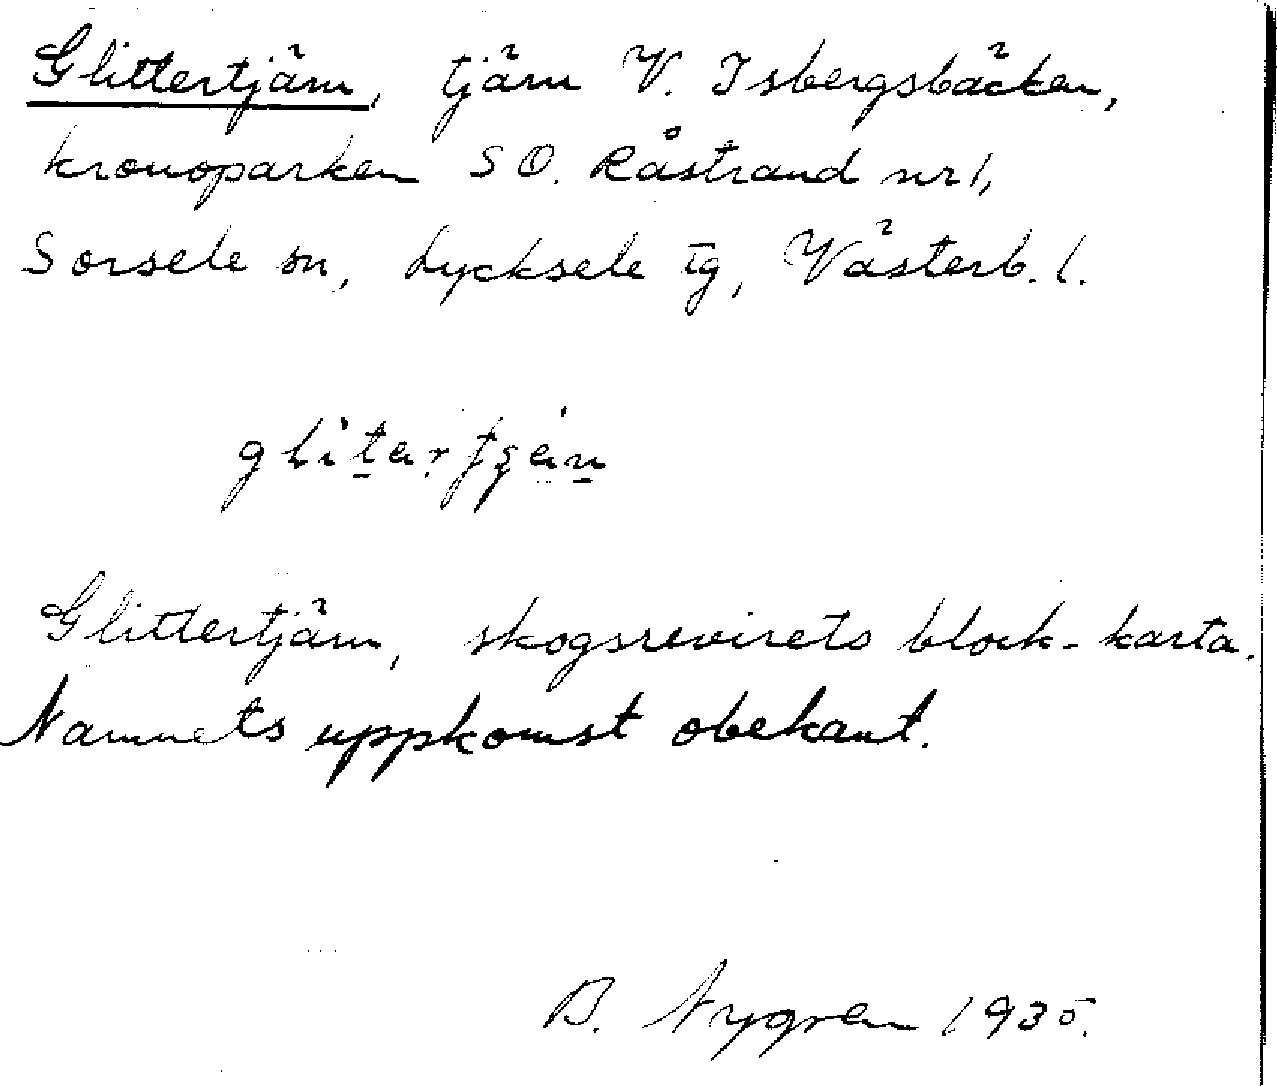 Glittertjärn, tjärn V. Isbergsbäcken,
kronoparken SO. Råstrand nr 1,
Sorsele sn, Lycksele tg, Västerb. l.
Glittertjärn, skogsrevirets block-karta.
Namnets uppkomst obekant.
B. Nygren 1935.